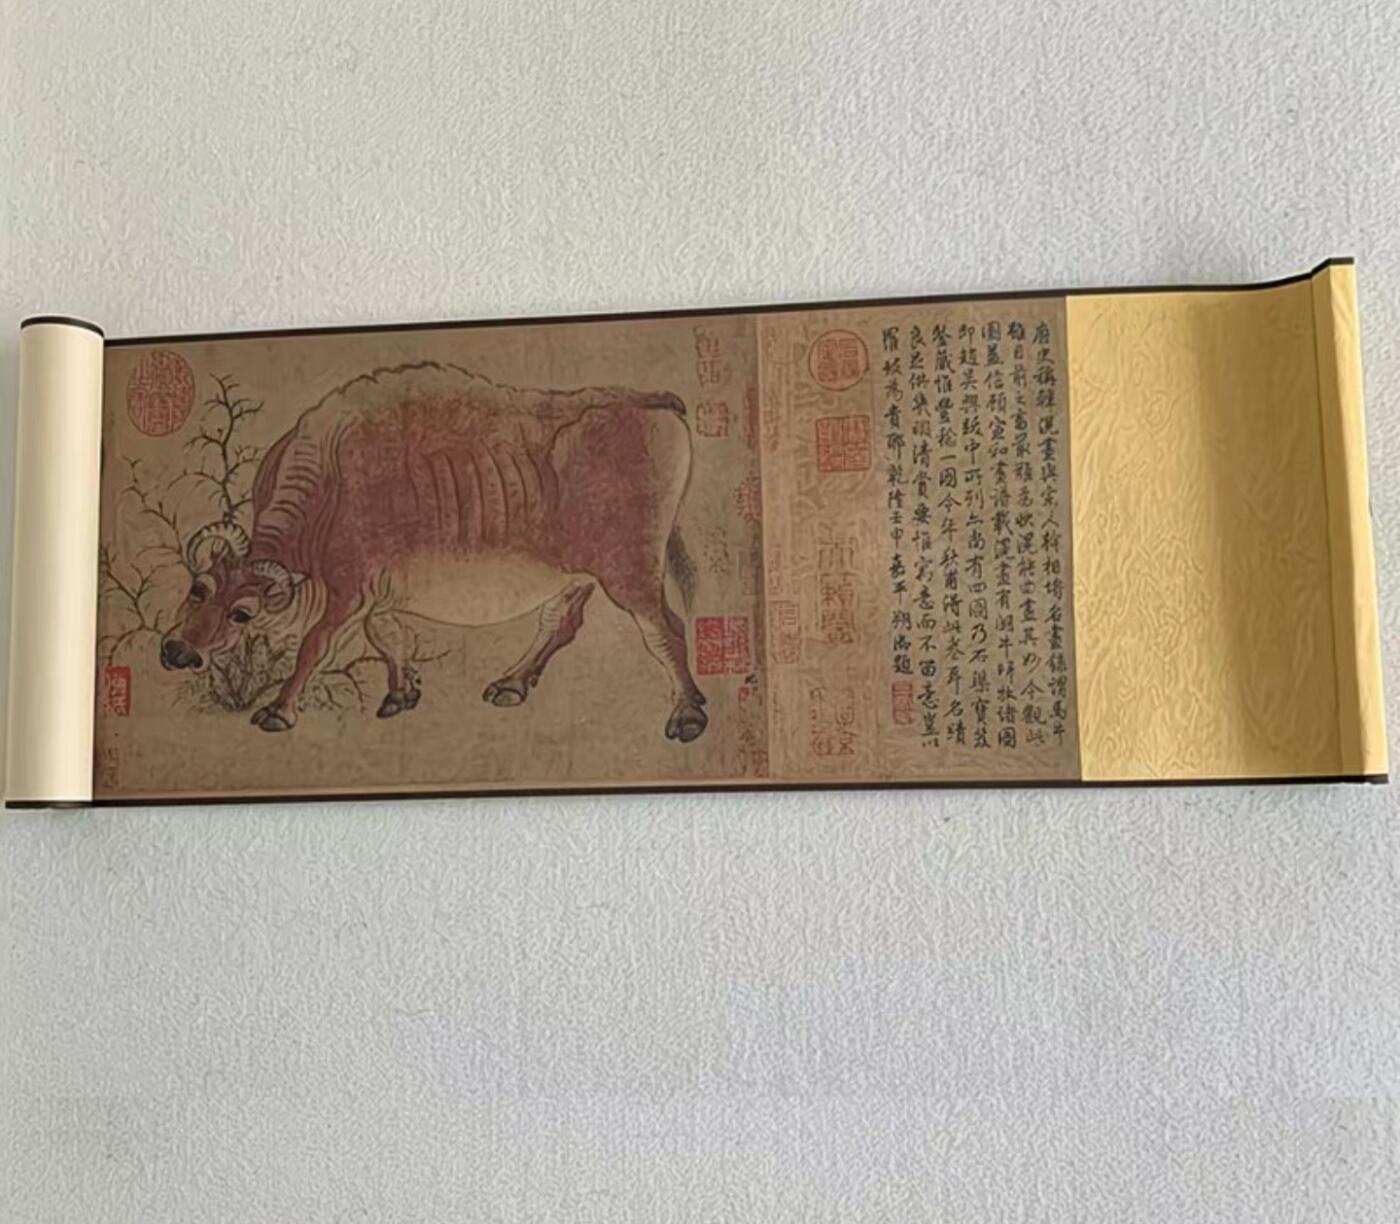 唐史稱韓滉畫與宗人幹相埒名畫錄謂馬牛
雖目前之畜最難為狀滉能曲盡其妙今觀此
圖益信顧宣和畫譜載滉畫有湖牛歸牧諸圖
即趙吳興跋中所列亦尚有四圖乃石渠寶笈
登藏惟豐稔一圖今年秋甫得此卷耳名蹟
良足供幾暇清賞要惟寓意而不留意豈以
羅致為貴耶乾隆壬申嘉平朔御題